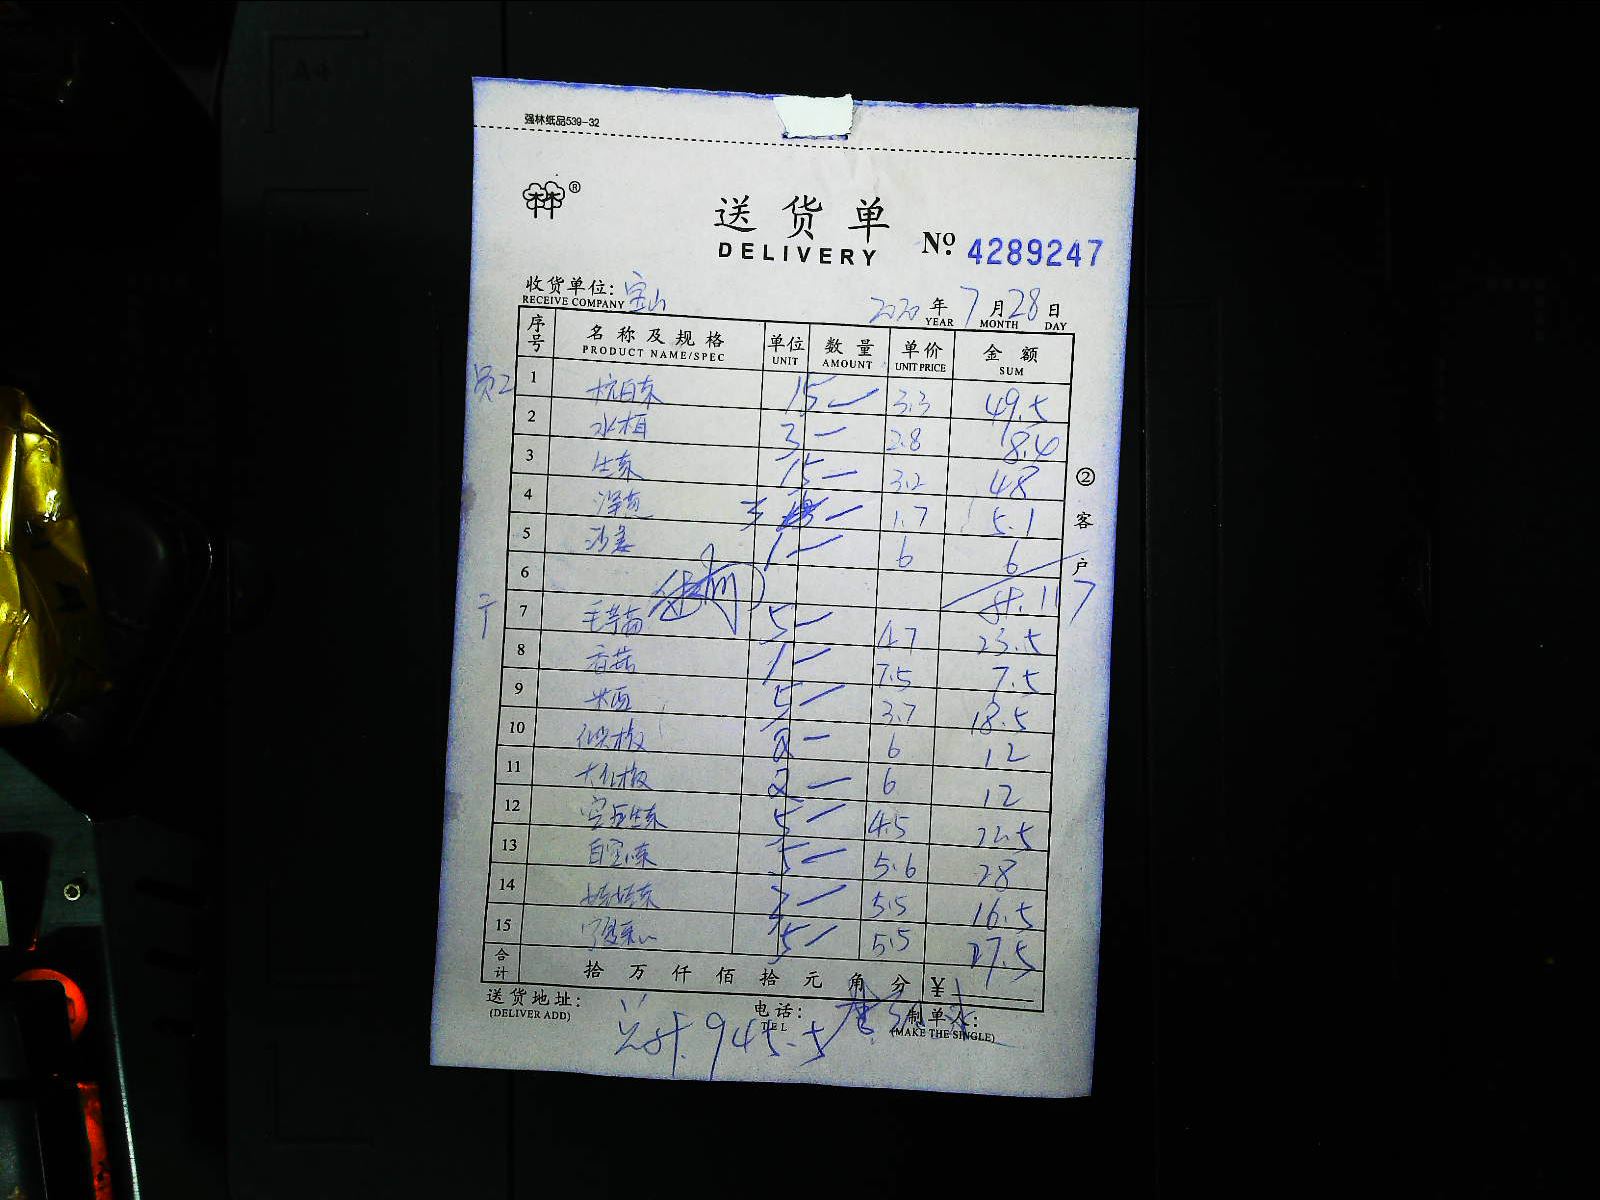 强林纸品539-32
林林®
送货单
DELIVERY
Nº 4289247
收货单位: 宝山
RECEIVE COMPANY
2020 年 7 月 28 日
YEAR MONTH DAY
序号 名称及规格 单位 数量 单价 金额
PRODUCT NAME/SPEC UNIT AMOUNT UNIT PRICE SUM
员工 1 杭白菜 15 3.3 49.5
2 水 3 2.8 8.4
3 生菜 15 3.2 48
4 1.7 5.1
5 沙姜 1 6 6
6 计.117
7 毛芋 5 4.7 23.5
8 香菇 1 7.5 7.5
9 5 3.7 18.5
10 椒 2 6 12
11 大红椒 2 6 12
12 生菜 5 4.5 22.5
13 5 5.6 28
14 娃娃菜 3 5.5 16.5
15 5 5.5 27.5
合计 拾 万 仟 佰 拾 元 角 分 ¥
②客户
送货地址:
(DELIVER ADD)
电话:
TEL
制单人:
(MAKE THE SINGLE)
总计.945.5